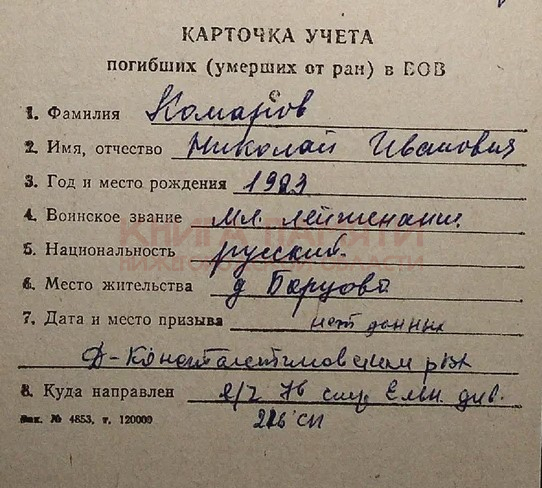 КАРТОЧКА УЧЕТА
погибших (умерших от ран) в ВОВ
1. Фамилия Комаров
2. Имя, отчество Николай Иванович
3. Год и место рождения 1923
4. Воинское звание мл. лейтенант
5. Национальность русский
КНИГА ПАМЯТИ
НИЖЕГОРОДСКОЙ ОБЛАСТИ
6. Место жительства д
7. Дата и место призыва нет данных
Д-Константиновским РВК
8. Куда направлен п/ч 76 Ельн. див.
Зак. № 4853, т. 120000
216 сп